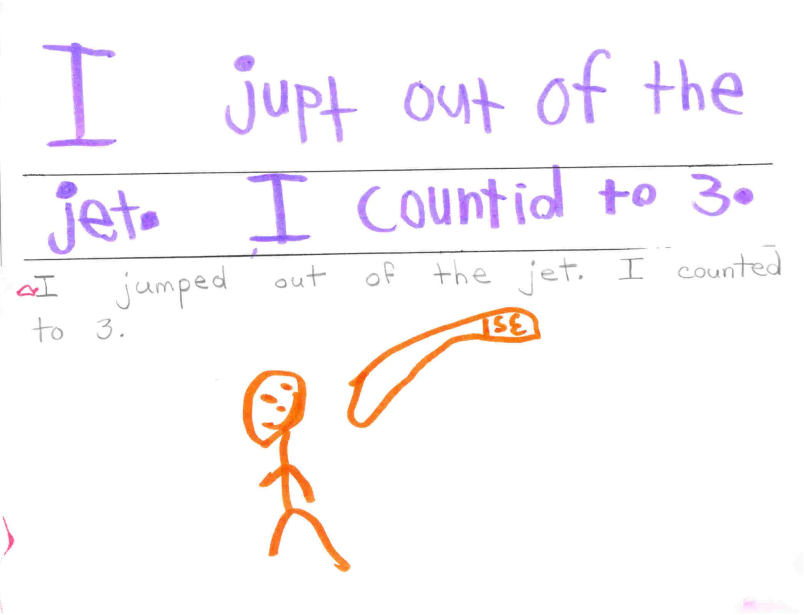 I jupt out of the
jet. I countid to 3.
I jumped out of the jet. I counted
to 3.